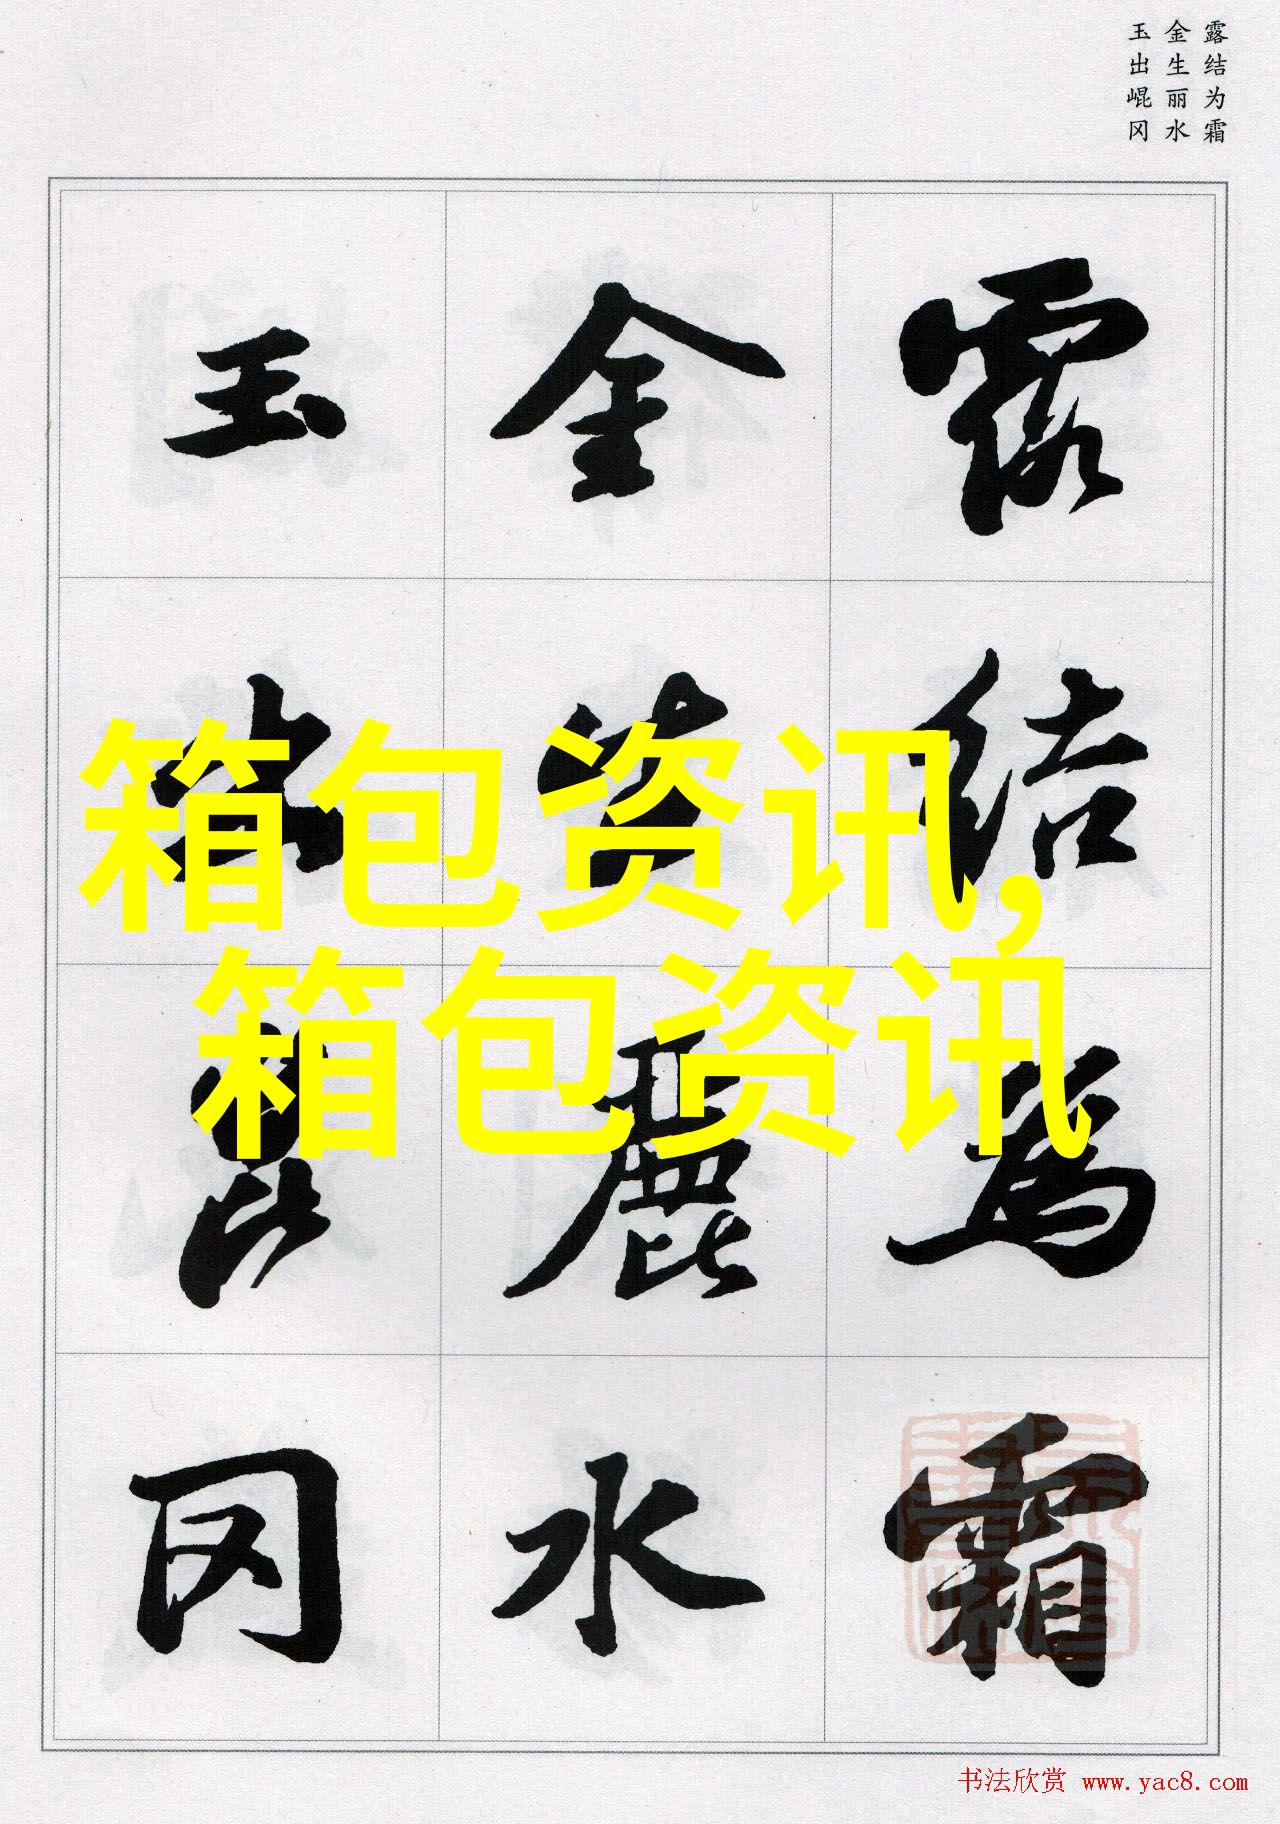 露结为霜
金生丽水
玉出崐冈
露结为霜
金生麗水
玉出崑冈
箱包资讯,
箱包资讯
书法欣赏 www.yac8.com